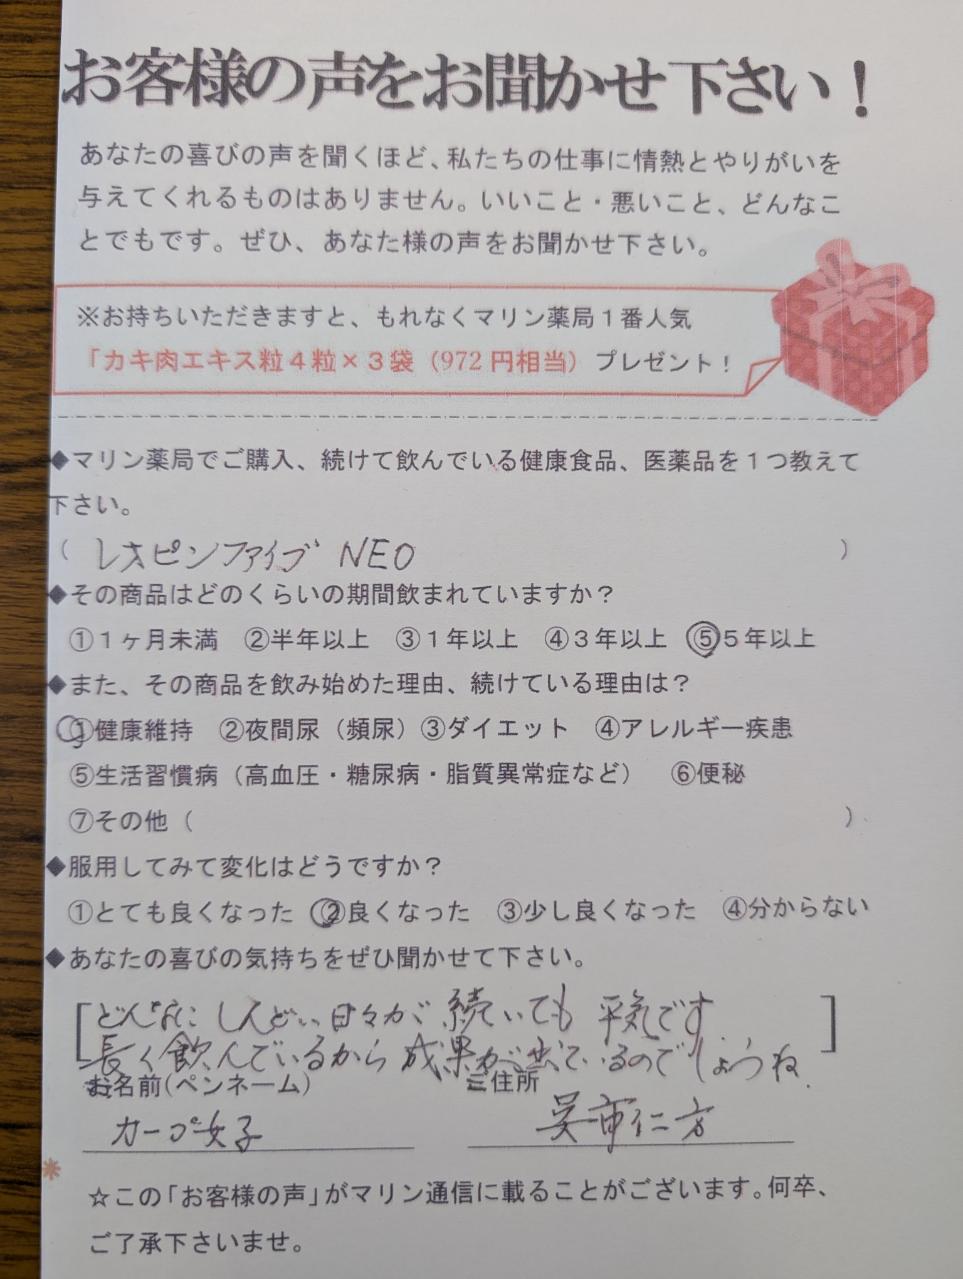 お客様の声をお聞かせ下さい！
あなたの喜びの声を聞くほど、私たちの仕事に情熱とやりがいを
与えてくれるものはありません。いいこと・悪いこと、どんなこ
とでもです。ぜひ、あなた様の声をお聞かせ下さい。
※お持ちいただきますと、もれなくマリン薬局１番人気
「カキ肉エキス粒４粒×３袋（972 円相当）プレゼント！
◆マリン薬局でご購入、続けて飲んでいる健康食品、医薬品を１つ教えて
下さい。
（ レオピンファイブ NEO ）
◆その商品はどのくらいの期間飲まれていますか？
①１ヶ月未満　②半年以上　③１年以上　④３年以上　⑤５年以上
◆また、その商品を飲み始めた理由、続けている理由は？
①健康維持　②夜間尿（頻尿）③ダイエット　④アレルギー疾患
⑤生活習慣病（高血圧・糖尿病・脂質異常症など）　⑥便秘
⑦その他（　）
◆服用してみて変化はどうですか？
①とても良くなった　②良くなった　③少し良くなった　④分からない
◆あなたの喜びの気持ちをぜひ聞かせて下さい。
[どんなに しんどい日々が 続いても 平気です]
長く飲んでいるから 成果が出ているのでしょうね.
お名前(ペンネーム)　ご住所
カープ女子　呉市仁方
☆この「お客様の声」がマリン通信に載ることがございます。何卒、
ご了承下さいませ。